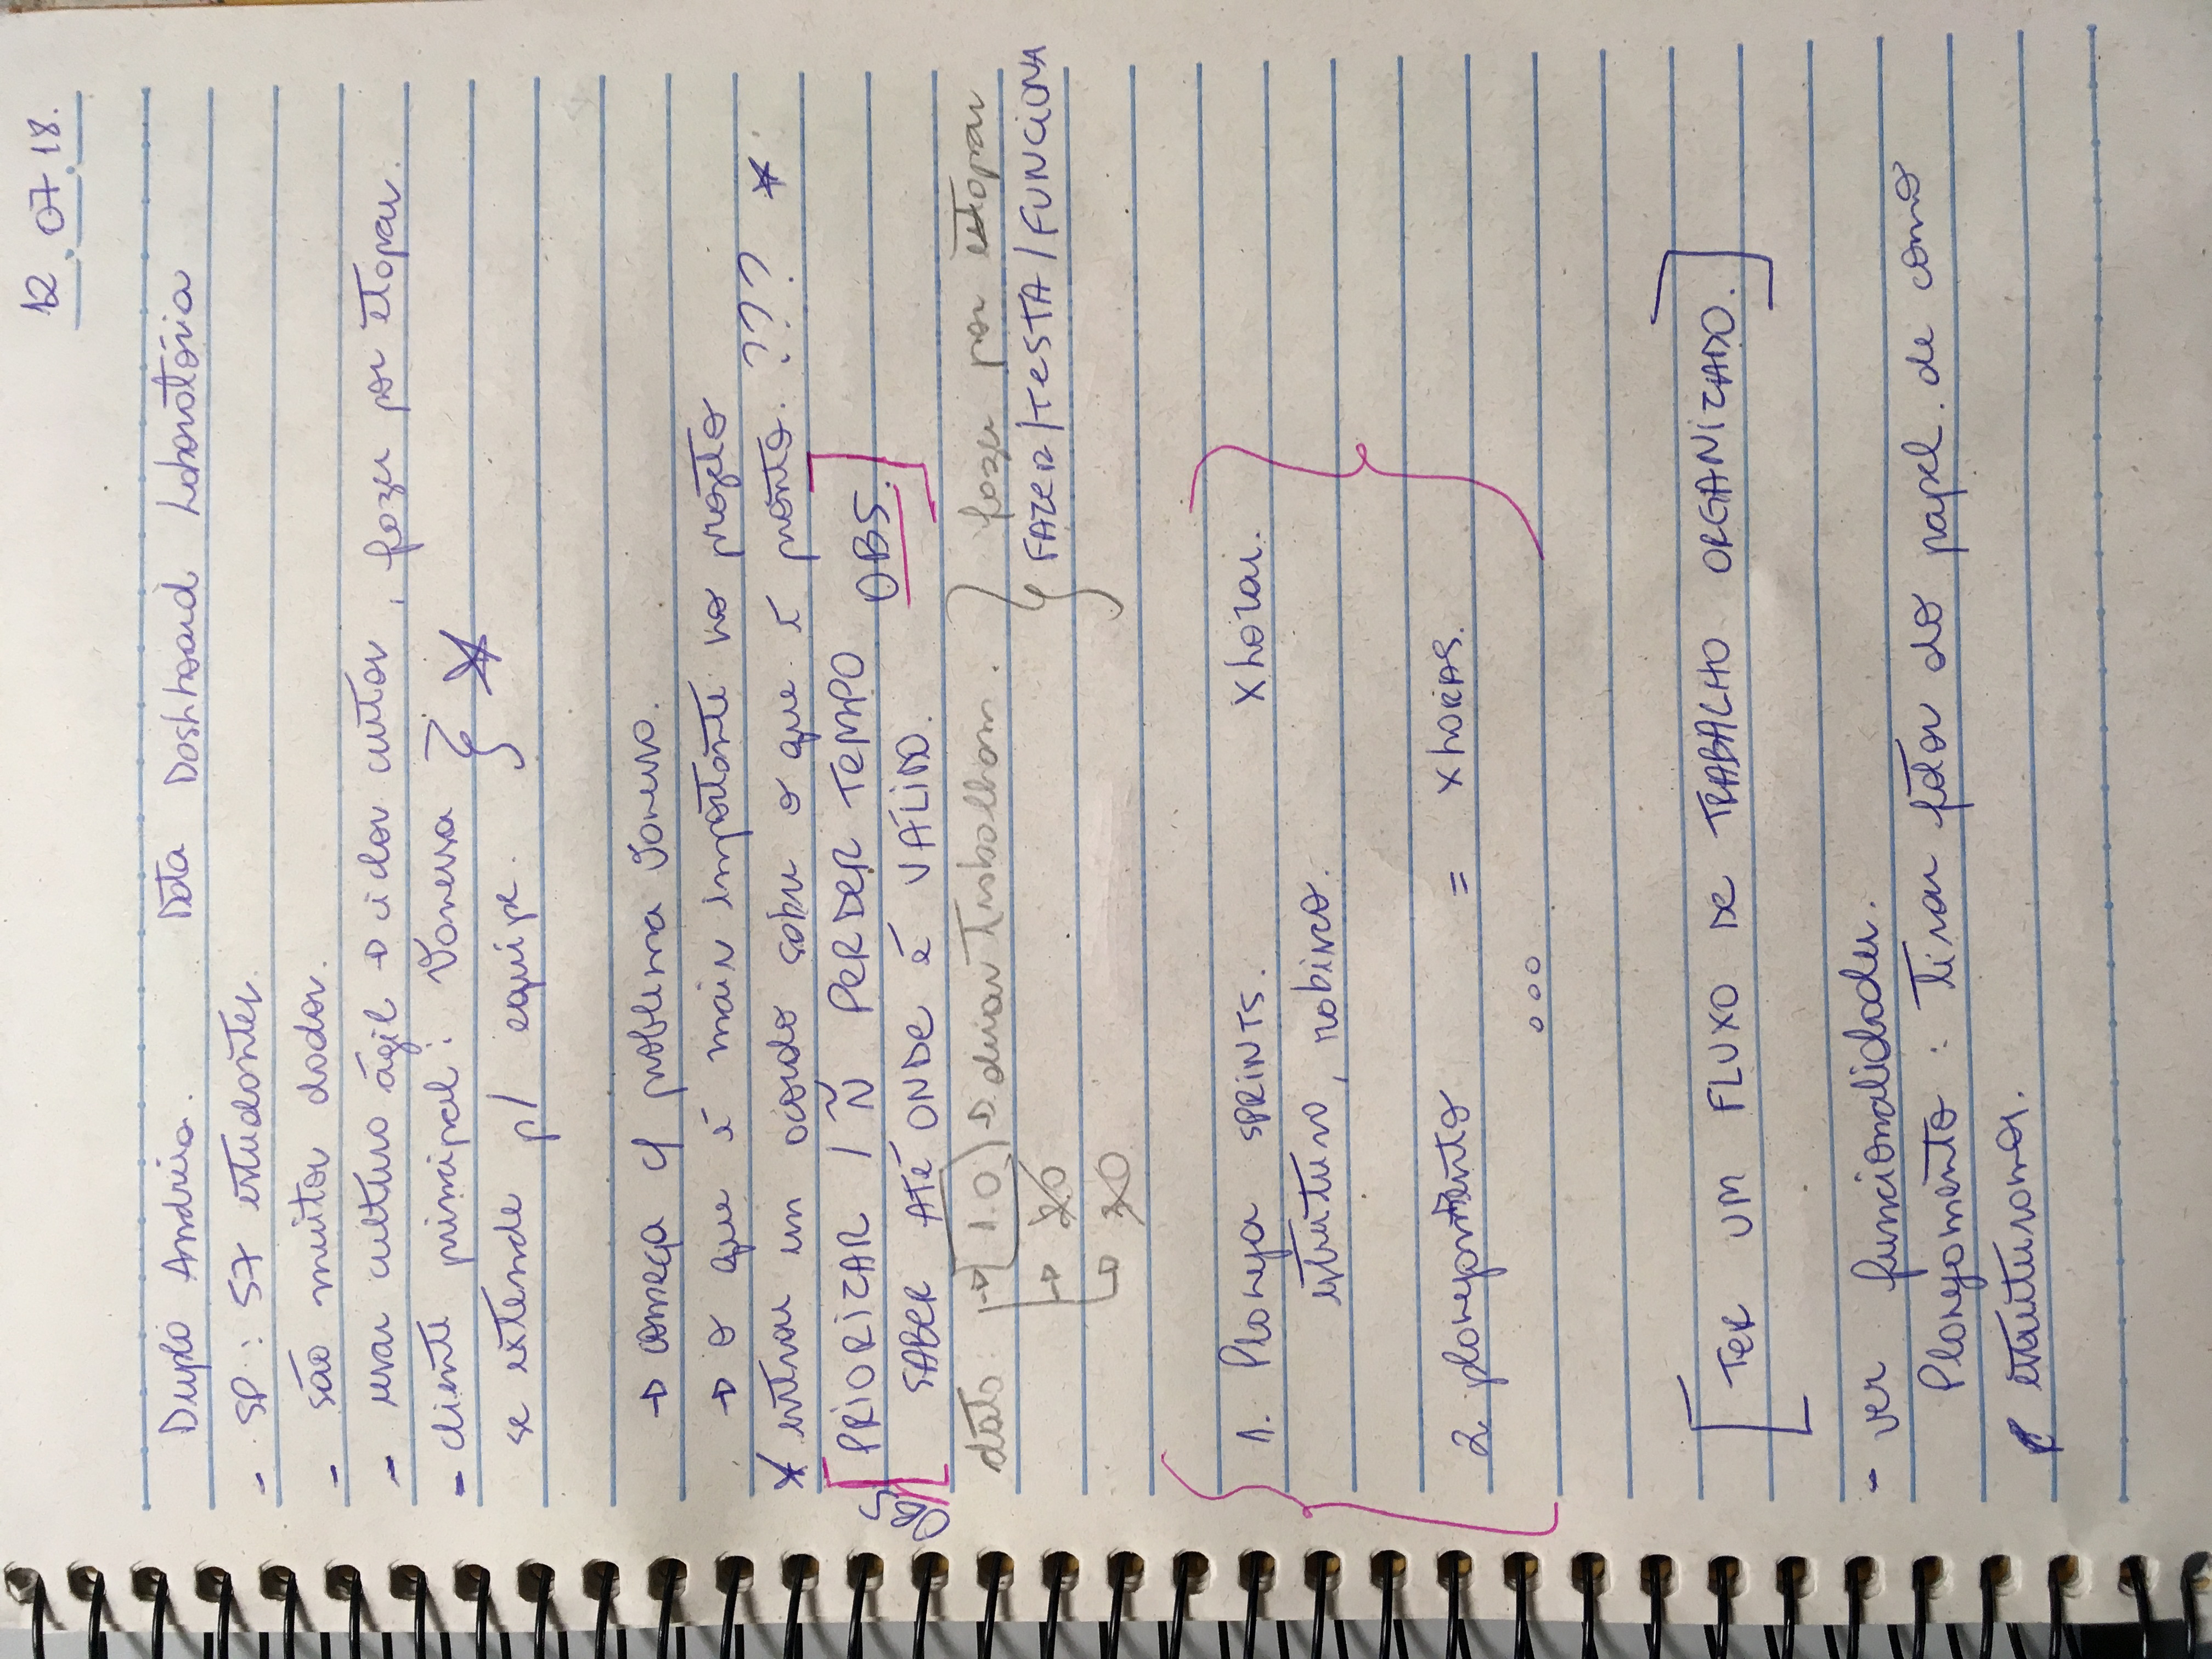 12.07.18.
Dupla Andréia. Data Dashboard Laboratória
- SP: 57 estudantes.
- são muitos dados.
- usar cultura ágil → ciclos curtos, fazer por etapas.
- cliente principal: Vanessa
se extende p/ equipe.
→ começa c/ problema Vanessa.
→ o que é mais importante no projeto
* entrar um acordo sobre o que é pronto. ??? *
OBS [PRIORIZAR / Ñ PERDER TEMPO OBS.]
SABER ATÉ ONDE É VÁLIDO.
data → 1.0 → duas trabalham. } fazer por etapas
→ 2.0 FAZER/TESTA/FUNCIONA
→ 3.0
1. Planeja SPRINTS. X horas.
estrutura, rabisco.
2 planejamento = X HORAS.
...
[TER UM FLUXO DE TRABALHO ORGANIZADO.]
- ver funcionalidades.
Planejamento: tirar fotos do papel. de como
estruturamos.